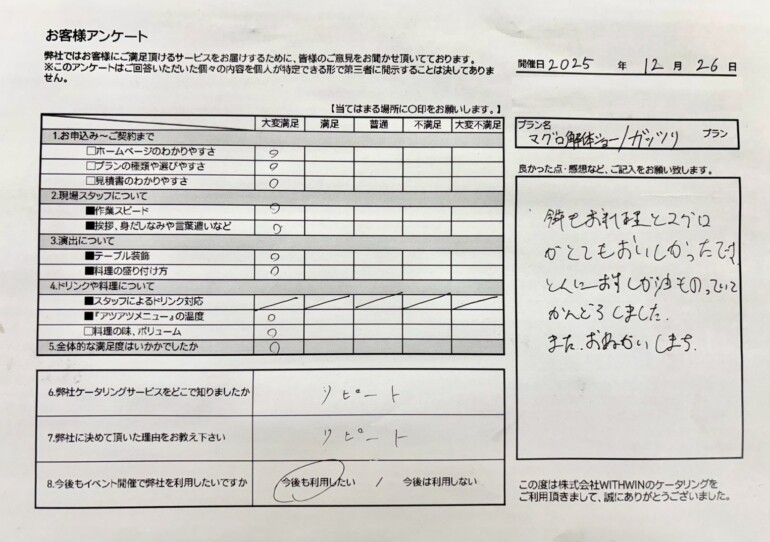 お客様アンケート
弊社ではお客様にご満足頂けるサービスをお届けするために、皆様のご意見をお聞かせ頂いております。
※このアンケートはご回答いただいた個々の内容を個人が特定できる形で第三者に開示することは決してありま
せん。
開催日 2025 年 12 月 26 日
【当てはまる場所に〇印をお願いします。】
大変満足 満足 普通 不満足 大変不満足
1.お申込み～ご契約まで
□ホームページのわかりやすさ ○
□プランの種類や選びやすさ ○
□見積書のわかりやすさ ○
2.現場スタッフについて
■作業スピード ○
■挨拶、身だしなみや言葉遣いなど ○
3.演出について
■テーブル装飾 ○
■料理の盛り付け方 ○
4.ドリンクや料理について
■スタッフによるドリンク対応
■『アツアツメニュー』の温度 ○
□料理の味、ボリューム ○
5.全体的な満足度はいかがでしたか ○
6.弊社ケータリングサービスをどこで知りましたか リピート
7.弊社に決めて頂いた理由をお教え下さい リピート
8.今後もイベント開催で弊社を利用したいですか 今後も利用したい / 今後は利用しない
プラン名
マグロ解体ショー/ガッツリ プラン
良かった点・感想など、ご記入をお願い致します。
お料理とマグロ
がとてもおいしかったです
とくにおすしが
かんどうしました.
また.おねがいします.
この度は株式会社WITHWINのケータリングを
ご利用頂きまして、誠にありがとうございました。